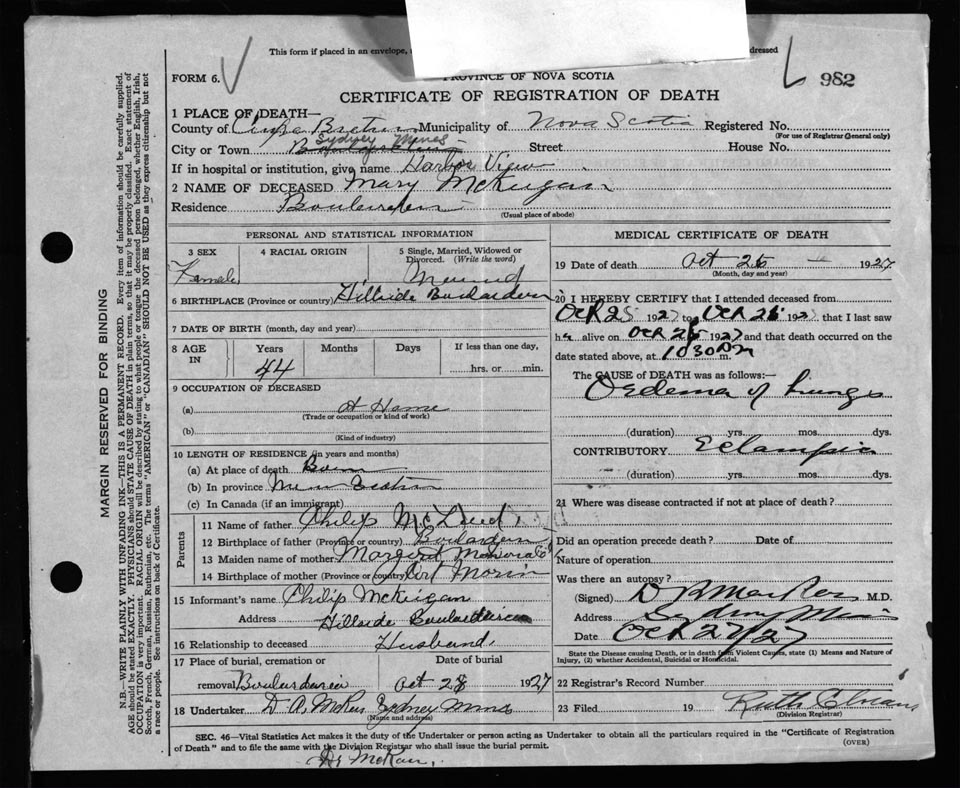 This form if placed in an envelope, dressed
FORM 6. PROVINCE OF NOVA SCOTIA 982
CERTIFICATE OF REGISTRATION OF DEATH
1 PLACE OF DEATH—
County of Cape Breton Municipality of Nova Scotia Registered No.
(For use of Registrar General only)
Sydney Mines
City or Town Street House No.
If in hospital or institution, give name Harbor View
2 NAME OF DECEASED Mary McKeigan
Residence
(Usual place of abode)
PERSONAL AND STATISTICAL INFORMATION
3 SEX 4 RACIAL ORIGIN 5 Single, Married, Widowed or Divorced. (Write the word)
Female Married
6 BIRTHPLACE (Province or country) Hillside Boularderie
7 DATE OF BIRTH (month, day and year)
8 AGE IN Years Months Days If less than one day,
44 hrs. or min.
9 OCCUPATION OF DECEASED
(a) At Home
(Trade or occupation or kind of work)
(b)
(Kind of industry)
10 LENGTH OF RESIDENCE (in years and months)
(a) At place of death Born
(b) In province Nova Scotia
(c) In Canada (if an immigrant)
Parents
11 Name of father Philip McLeod
12 Birthplace of father (Province or country) Boularderie
13 Maiden name of mother Margert
14 Birthplace of mother (Province or country) Port Morien
15 Informant's name Philip McKeigan
Address Hillside Boularderie
16 Relationship to deceased Husband
17 Place of burial, cremation or Date of burial
removal Boularderie Oct 28 1927
18 Undertaker D A McRae Sydney Mines
(Name and address)
MEDICAL CERTIFICATE OF DEATH
19 Date of death Oct 26 1927
(Month, day and year)
20 I HEREBY CERTIFY that I attended deceased from
Oct 25 1927 to Oct 26 192 that I last saw
h er alive on Oct 26 1927 and that death occurred on the
date stated above, at 10 30 P m.
The CAUSE OF DEATH was as follows:—
Oedema of Lungs
(duration) yrs. mos. dys.
CONTRIBUTORY Eclampsia
(duration) yrs. mos. dys.
21 Where was disease contracted if not at place of death?
Did an operation precede death? Date of
Nature of operation
Was there an autopsy?
(Signed) M.D.
Address Sydney Mines
Date Oct 27/27
State the Disease causing Death, or in death from Violent Causes, state (1) Means and Nature of
Injury, (2) whether Accidental, Suicidal or Homicidal.
22 Registrar's Record Number
23 Filed 19 Ruth
(Division Registrar)
SEC. 46—Vital Statistics Act makes it the duty of the Undertaker or person acting as Undertaker to obtain all the particulars required in the "Certificate of Registration
of Death" and to file the same with the Division Registrar who shall issue the burial permit. (OVER)
MARGIN RESERVED FOR BINDING
N.B.—WRITE PLAINLY WITH UNFADING INK—THIS IS A PERMANENT RECORD. Every item of information should be carefully supplied.
AGE should be stated EXACTLY. PHYSICIANS should STATE CAUSE OF DEATH in plain terms, so that it may be properly classified. Exact statement of
OCCUPATION is very important. RACIAL ORIGIN will be described by stating to what people or tongue the deceased person belonged, whether English, Irish,
Scotch, French, German, Russian, Ruthenian, etc. The terms "AMERICAN" or "CANADIAN" SHOULD NOT BE USED as they express citizenship but not
a race or people. See instructions on back of Certificate.